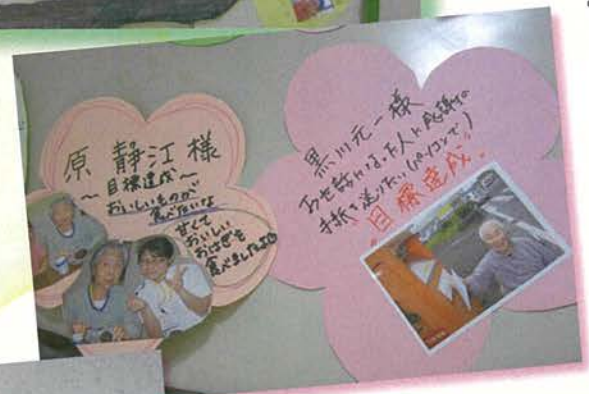 原 静江 様
～目標達成～
おいしいものが
食べたいな
甘くて
おいしい
おはぎを
食べましたよ
黒川元一様
お世話になった人に感謝の
手紙を送りたい(パソコンで)
目標達成